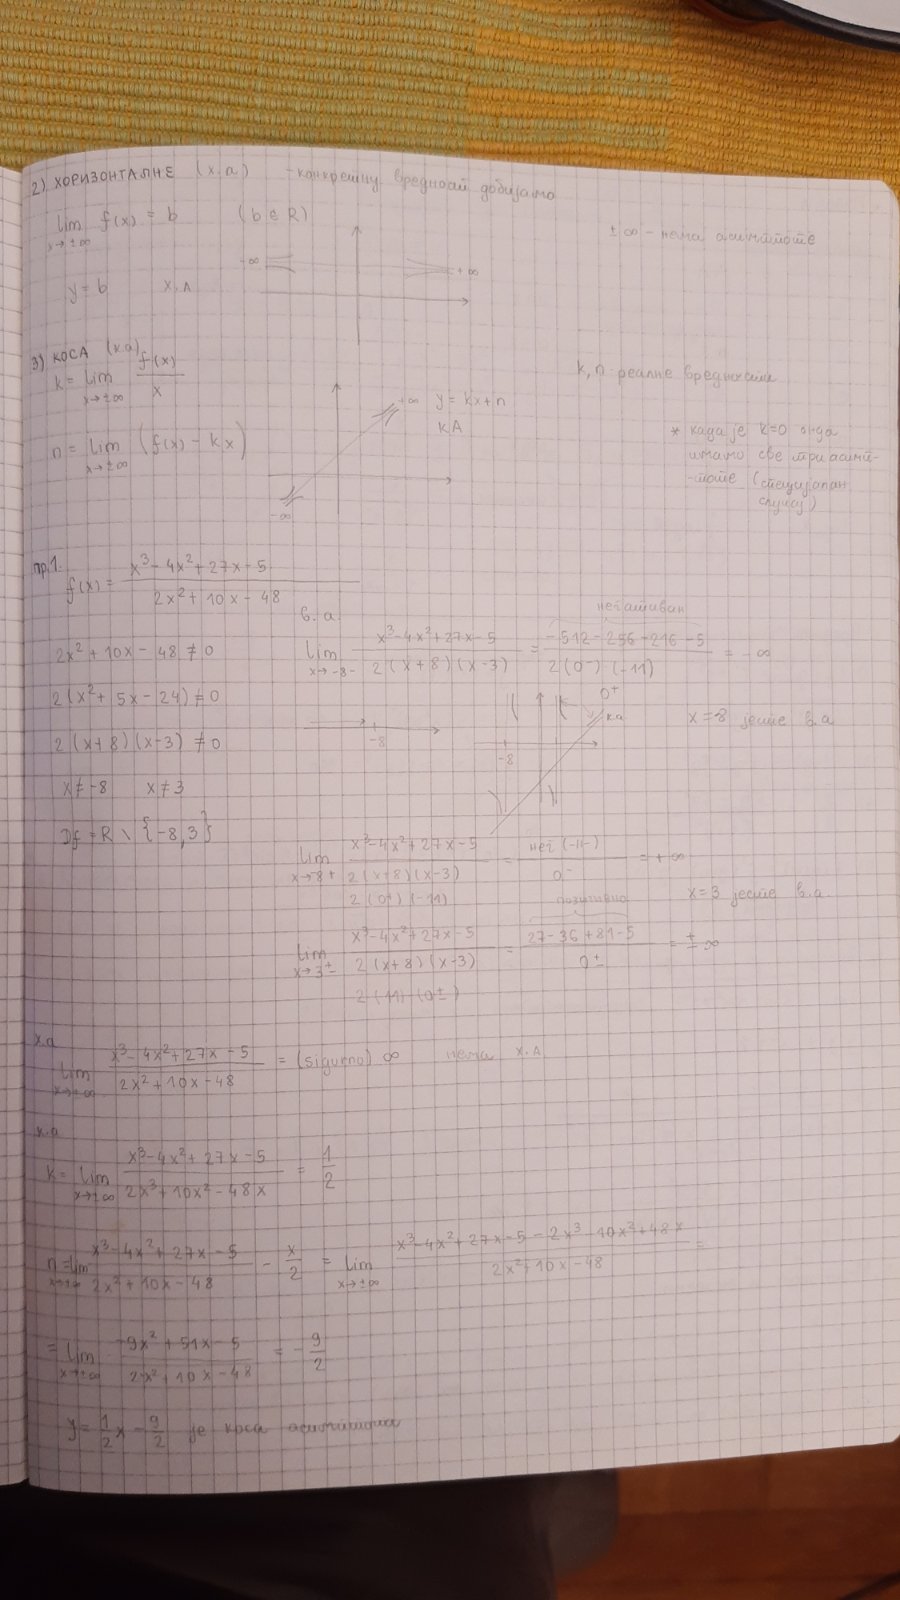 2) ХОРИЗОНТАЛНЕ (х.а) - конкретну вредност добијамо
lim f(x) = b (b ∈ R)
x→±∞
±∞ - нема асимптоте
-∞ +∞
y = b х.А
3) КОСА (ка)
k = lim f(x)/x
x→±∞
k, n реалне вредности
+∞ y = kx+n
кА
n = lim (f(x) - kx)
x→±∞
-∞
* када је k=0 онда
имамо све три асимп-
-тоте (специјалан
случај)
пр.1.
f(x) = (x³ - 4x² + 27x - 5)/(2x² + 10x - 48)
в.а.
2x² + 10x - 48 ≠ 0
2(x² + 5x - 24) ≠ 0
2(x+8)(x-3) ≠ 0
x ≠ -8 x ≠ 3
Df = R \ {-8,3}
негативан
lim (x³-4x²+27x-5)/(2(x+8)(x-3)) = (-512-256-216-5)/(2(0-)(-11)) = -∞
x→-8-
0+
к.а
x=-8 јесте в.а
-8
-8
lim (x³-4x²+27x-5)/(2(x+8)(x-3)) = нег(-11-)/0- = +∞
x→8+
2(0+)(-11)
x=3 јесте в.а.
позитивно
lim (x³-4x²+27x-5)/(2(x+8)(x-3)) = (27-36+81-5)/0± = ±∞
x→3±
2(11)(0±)
х.а
lim (x³-4x²+27x-5)/(2x²+10x-48) = (sigurno) ∞ нема х.А
x→±∞
к.а
k = lim (x³-4x²+27x-5)/(2x³+10x²-48x) = 1/2
x→±∞
n = lim (x³-4x²+27x-5)/(2x²+10x-48) - x/2 = lim (x³-4x²+27x-5-2x³-10x²+48x)/(2x²+10x-48) =
x→±∞ x→±∞
= lim (-9x²+51x-5)/(2x²+10x-48) = -9/2
x→±∞
y = 1/2 x - 9/2 је коса асимптота